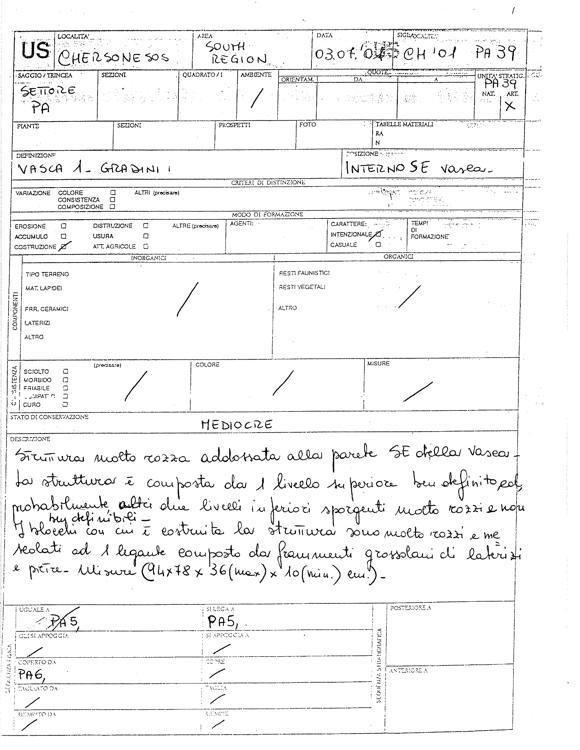 US
LOCALITA'
CHERSONESOS
AREA
SOUTH
REGION
DATA
03.07.01
SIGLA
CH '01 PA 39
SAGGIO / TRINCEA
SETTORE
PA
SEZIONI
QUADRATO / I
AMBIENTE
/
ORIENTAM.
QUOTE
DA
A
UNITA' STRATIG.
PA 39
NAT. ART.
X
PIANTE
SEZIONI
PROSPETTI
FOTO
TABELLE MATERIALI
RA
N
DEFINIZIONE
VASCA 1 - GRADINI
POSIZIONE
INTERNO SE vasca -
CRITERI DI DISTINZIONE
VARIAZIONE COLORE
CONSISTENZA
COMPOSIZIONE
ALTRI (precisare)
MODO DI FORMAZIONE
EROSIONE
ACCUMULO
COSTRUZIONE
DISTRUZIONE
USURA
ATT. AGRICOLE
ALTRE (precisare)
AGENTI:
CARATTERE:
INTENZIONALE
CASUALE
TEMPI
DI
FORMAZIONE
COMPONENTI
INORGANICI
TIPO TERRENO
MAT. LAPIDEI
FRR. CERAMICI
LATERIZI
ALTRO
/
ORGANICI
RESTI FAUNISTICI
RESTI VEGETALI
ALTRO
/
SCIOLTO
MORBIDO
FRIABILE
DURO
(precisare)
/
COLORE
/
MISURE
/
STATO DI CONSERVAZIONE
MEDIOCRE
DESCRIZIONE
Struttura molto rozza addossata alla parete SE della vasca -
La struttura è composta da 1 livello superiore ben definito ed,
probabilmente altri due livelli inferiori sporgenti molto rozzi e non
ben definibili -
I blocchi con cui è costruita la struttura sono molto rozzi e me
scolati ad 1 legante composto da frammenti grossolani di laterizi
e pietre - Misure (94x78 x 36(max) x 10(min.) cm.) -
SEQUENZA FISICA
UGUALE A
PA5,
SI LEGA A
PA5,
GLI SI APPOGGIA
/
SI APPOGGIA A
/
COPERTO DA
PA6,
COPRE
/
TAGLIATO DA
/
TAGLIA
/
RIEMPITO DA
/
RIEMPIE
/
SEQUENZA STRATIGRAFICA
POSTERIORE A
ANTERIORE A